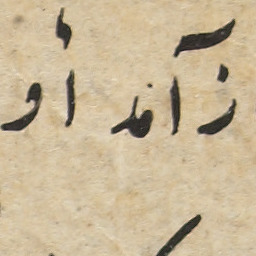 زآمد أو